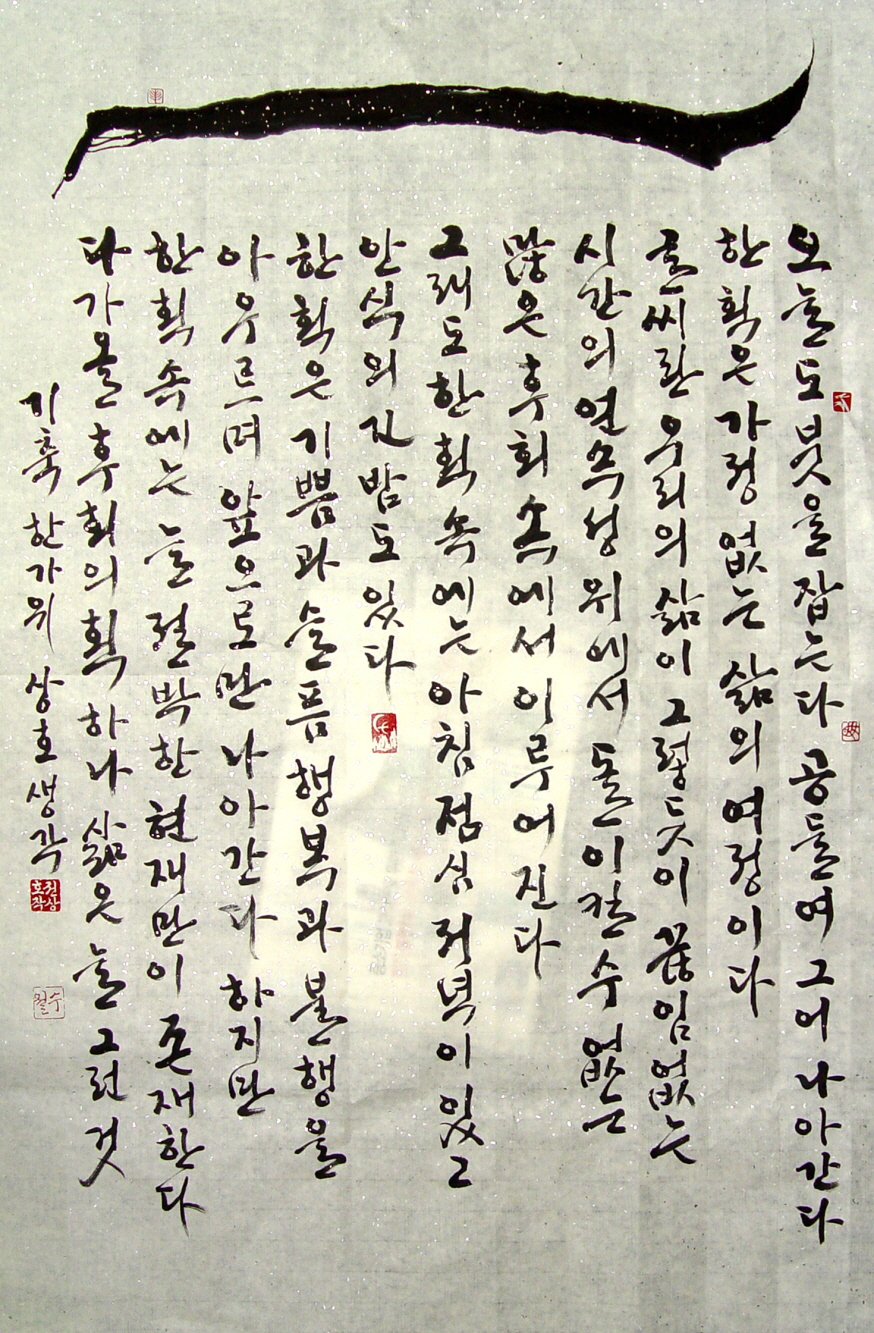 오늘도 붓을 잡는다 공들여 그어 나아간다
한 획은 가정 없는 삶의 여정이다
글씨란 우리의 삶이 그렇듯이 끊임없는
시간의 연속성 위에서 돌이킬 수 없는
많은 후회 속에서 이루어진다
그래도 한 획 속에는 아침 점심 저녁이 있고
안식의 긴 밤도 있다
한 획은 기쁨과 슬픔 행복과 불행을
아우르며 앞으로만 나아간다 하지만
한 획 속에는 늘 절박한 현재만이 존재한다
다가올 후회의 획 하나 삶은 늘 그런 것
기축 한가위 상호 생각
권상호작